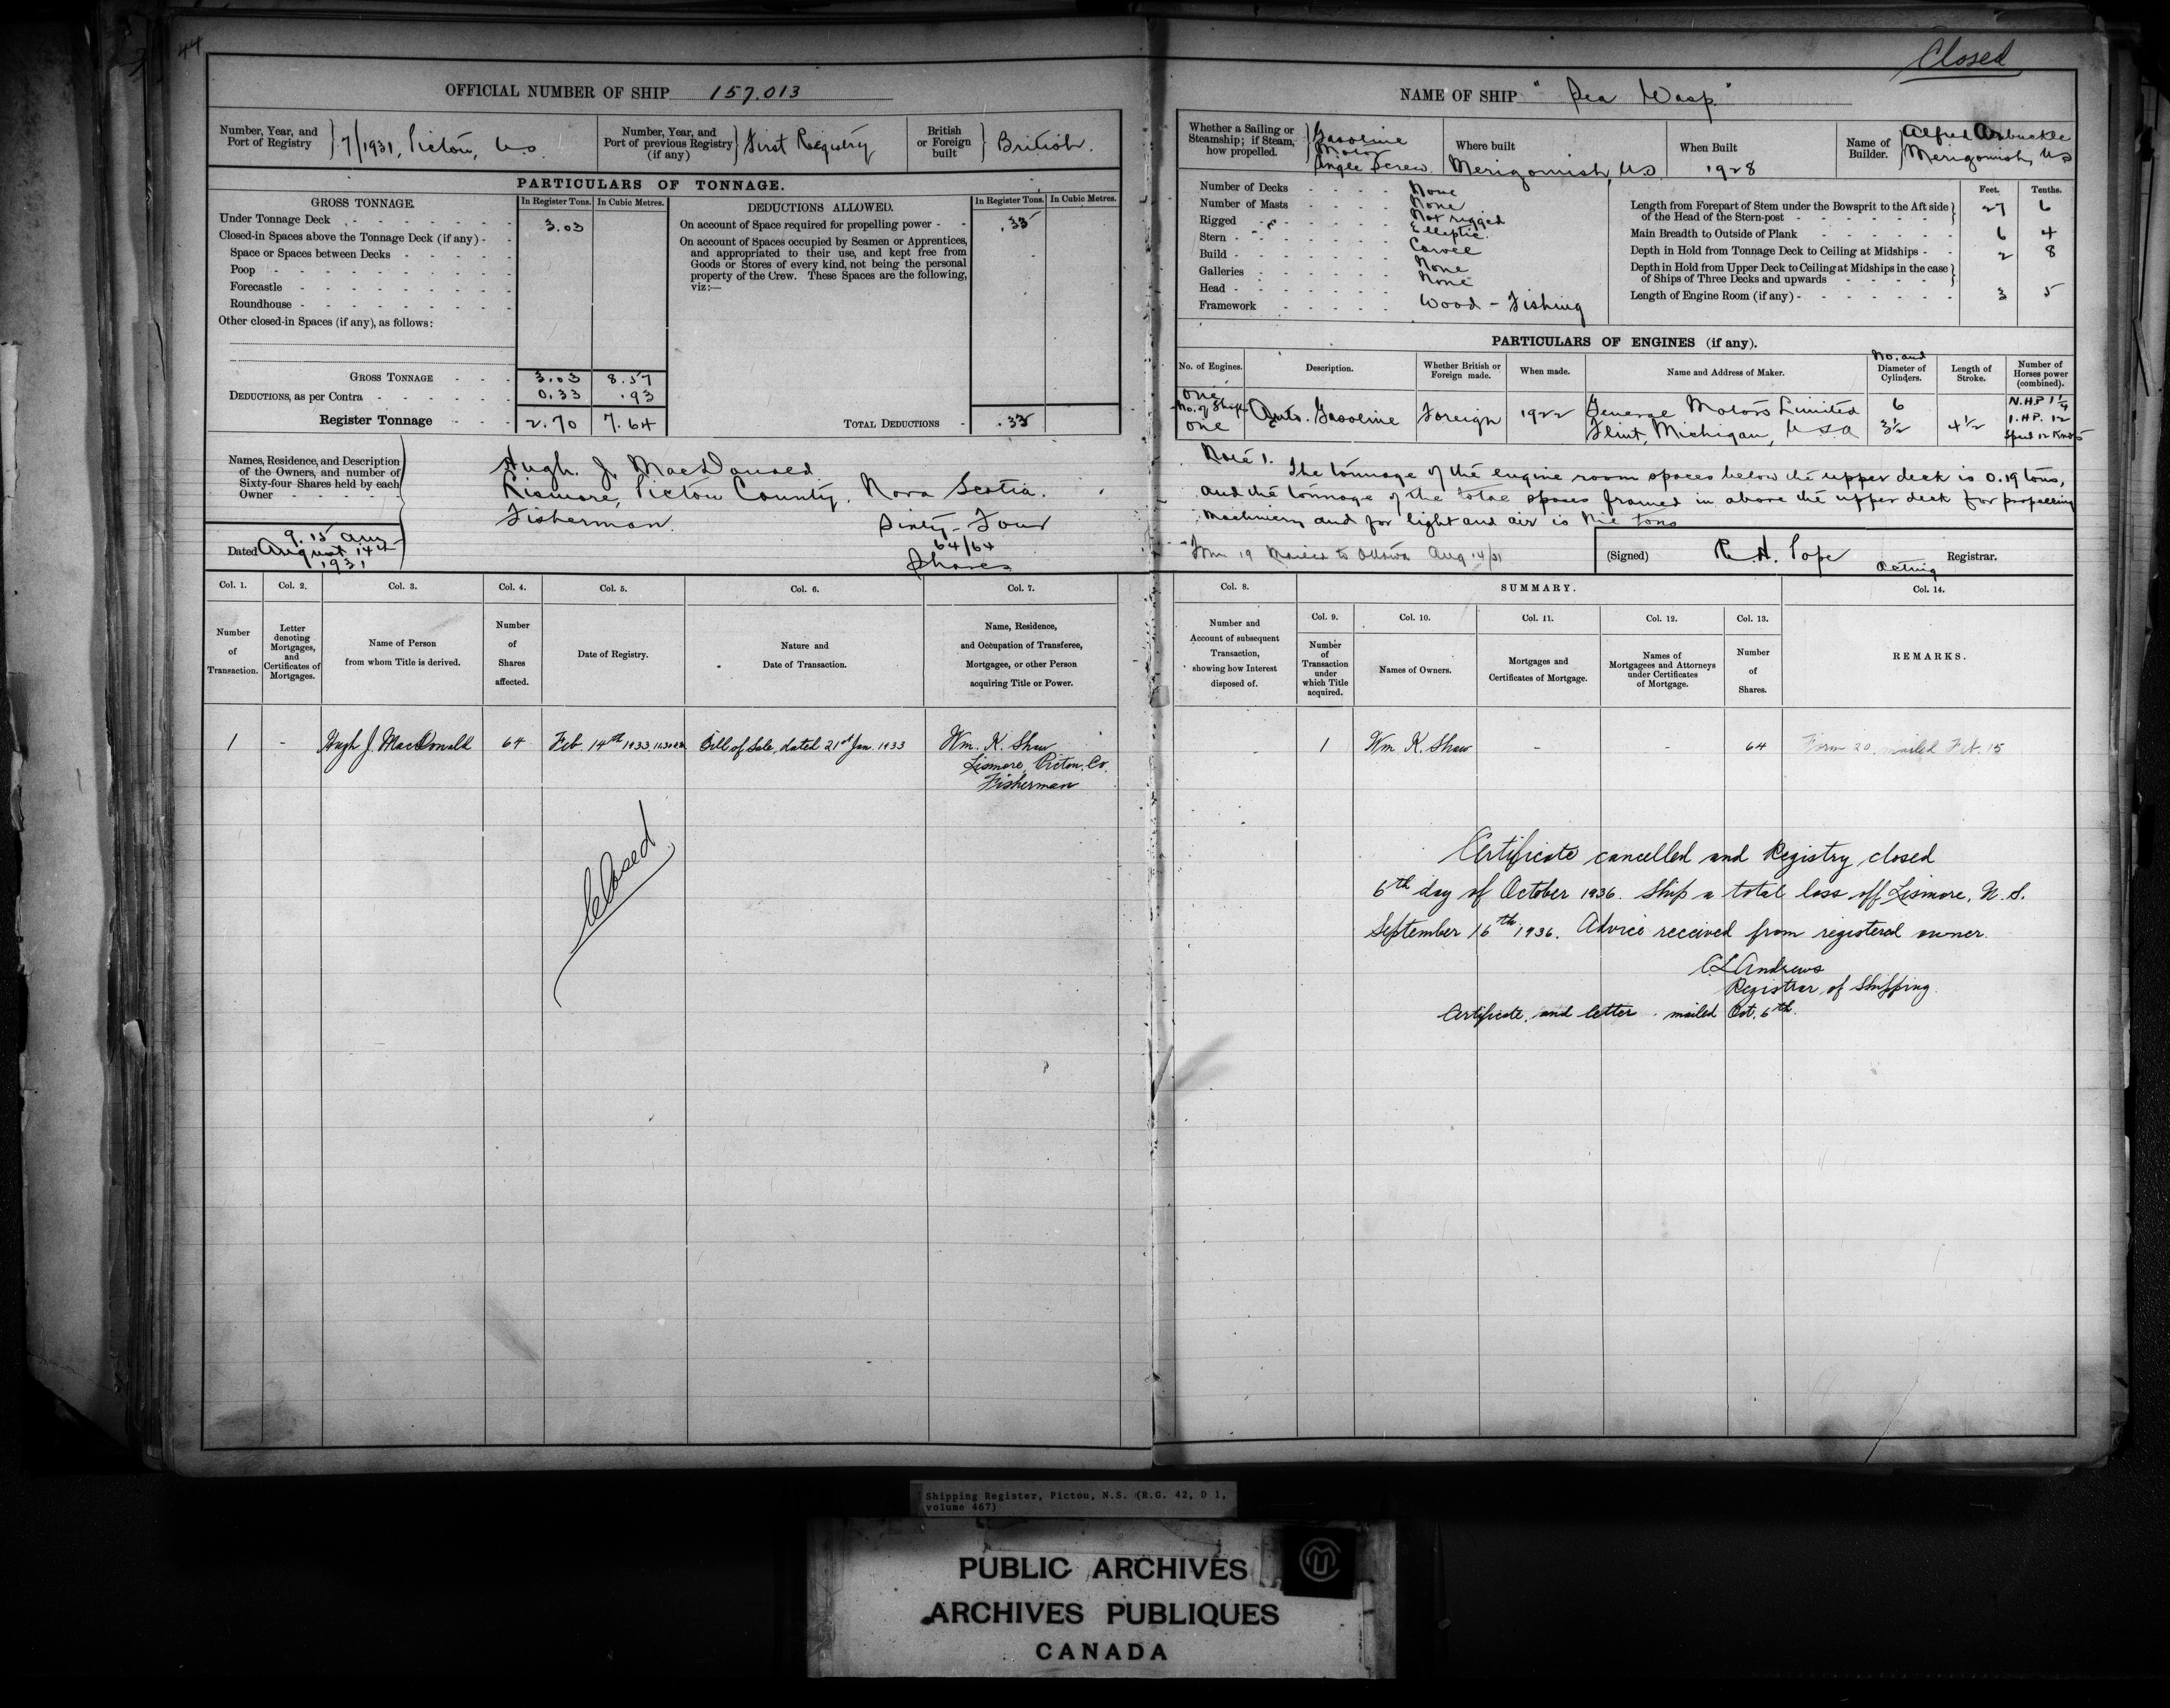 44
Closed
OFFICIAL NUMBER OF SHIP 157.013
Number, Year, and Port of Registry } 7/1931, Pictou, N.S.
Number, Year, and Port of previous Registry (if any) } First Registry
British or Foreign built } British.
PARTICULARS OF TONNAGE.
GROSS TONNAGE. In Register Tons. In Cubic Metres.
Under Tonnage Deck 3.03
Closed-in Spaces above the Tonnage Deck (if any)
Space or Spaces between Decks
Poop
Forecastle
Roundhouse
Other closed-in Spaces (if any), as follows:
GROSS TONNAGE 3.03 8.57
DEDUCTIONS, as per Contra 0.33 .93
Register Tonnage 2.70 7.64
DEDUCTIONS ALLOWED. In Register Tons. In Cubic Metres.
On account of Space required for propelling power .33
On account of Spaces occupied by Seamen or Apprentices,
and appropriated to their use, and kept free from
Goods or Stores of every kind, not being the personal
property of the Crew. These Spaces are the following,
viz:—
TOTAL DEDUCTIONS .33
Names, Residence, and Description
of the Owners, and number of
Sixty-four Shares held by each
Owner
Hugh. J. MacDonald
Lismore, Pictou County, Nova Scotia.
Fisherman. Sixty-Four
64/64
Shares
9.15 am
Dated August 14th
1931
NAME OF SHIP "Sea Wasp"
Whether a Sailing or Steamship; if Steam, how propelled. } Gasoline Motor Single Screw.
Where built Merigomish, N.S.
When Built 1928
Name of Builder. } Alfred Arbuckle Merigomish, N.S
Number of Decks None
Number of Masts None
Rigged Not rigged
Stern Elliptic.
Build Carvel
Galleries None
Head None
Framework Wood - Fishing
Feet. Tenths.
Length from Forepart of Stem under the Bowsprit to the Aft side of the Head of the Stern-post 27 6
Main Breadth to Outside of Plank 6 4
Depth in Hold from Tonnage Deck to Ceiling at Midships 2 8
Depth in Hold from Upper Deck to Ceiling at Midships in the case of Ships of Three Decks and upwards
Length of Engine Room (if any) 3 5
PARTICULARS OF ENGINES (if any).
No. of Engines. Description. Whether British or Foreign made. When made. Name and Address of Maker. No. and Diameter of Cylinders. Length of Stroke. Number of Horses power (combined).
One No. of Shafts One Auto. Gasoline Foreign 1922 General Motors Limited Flint, Michigan, U.S.A 6 3½ 4½ N.H.P 1¼ I.H.P. 12 Speed 12 Knots
Note 1. The tonnage of the engine room spaces below the upper deck is 0.19 tons,
and the tonnage of the total spaces framed in above the upper deck for propelling
Machinery and for light and air is Nil tons
Form 19 Mailed to Ottawa Aug 14/31
(Signed) R. H. Pope Acting Registrar.
Col. 1. Col. 2. Col. 3. Col. 4. Col. 5. Col. 6. Col. 7.
Number of Transaction.
Letter denoting Mortgages, and Certificates of Mortgages.
Name of Person from whom Title is derived.
Number of Shares affected.
Date of Registry.
Nature and Date of Transaction.
Name, Residence, and Occupation of Transferee, Mortgagee, or other Person acquiring Title or Power.
1 - Hugh J. MacDonald 64 Feb. 14th 1933 Bill of Sale, dated 21st Jan. 1933 Wm. K. Shaw
Lismore, Pictou, Co.
Fisherman
Closed
Col. 8. SUMMARY. Col. 14.
Col. 9. Col. 10. Col. 11. Col. 12. Col. 13.
Number and Account of subsequent Transaction, showing how Interest disposed of.
Number of Transaction under which Title acquired.
Names of Owners.
Mortgages and Certificates of Mortgage.
Names of Mortgagees and Attorneys under Certificates of Mortgage.
Number of Shares.
REMARKS.
1 Wm. K. Shaw - - 64 Form 20 mailed Feb. 15
Certificate cancelled and Registry closed
6th day of October 1936. Ship a total loss off Lismore, N.S.
September 16th 1936. Advice received from registered owner.
C L Andrews
Registrar of Shipping.
Certificate and letter mailed Oct. 6th.
Shipping Register, Pictou, N.S. (R.G. 42, D 1,
volume 467)
PUBLIC ARCHIVES
ARCHIVES PUBLIQUES
CANADA